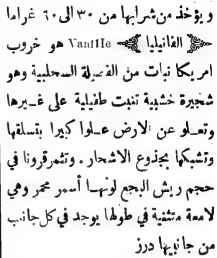 ويؤخذ من شرابها من ٣٠ الى ٦٠ غراما
الڤانيليا Vanille هو خروب
امريكا نبات من الفصيلة السحلبية وهو
شجيرة خشبية تنبت طفيلية على غيرها
وتعلو عن الارض علوا كبيرا بتسلقها
وتشبكها بجذوع الاشجار . وتثمر قرونا في
حجم ريش البجع لونها أسمر محمر وهي
لامعة منثنية في طولها يوجد في كل جانب
من جانبيها درز